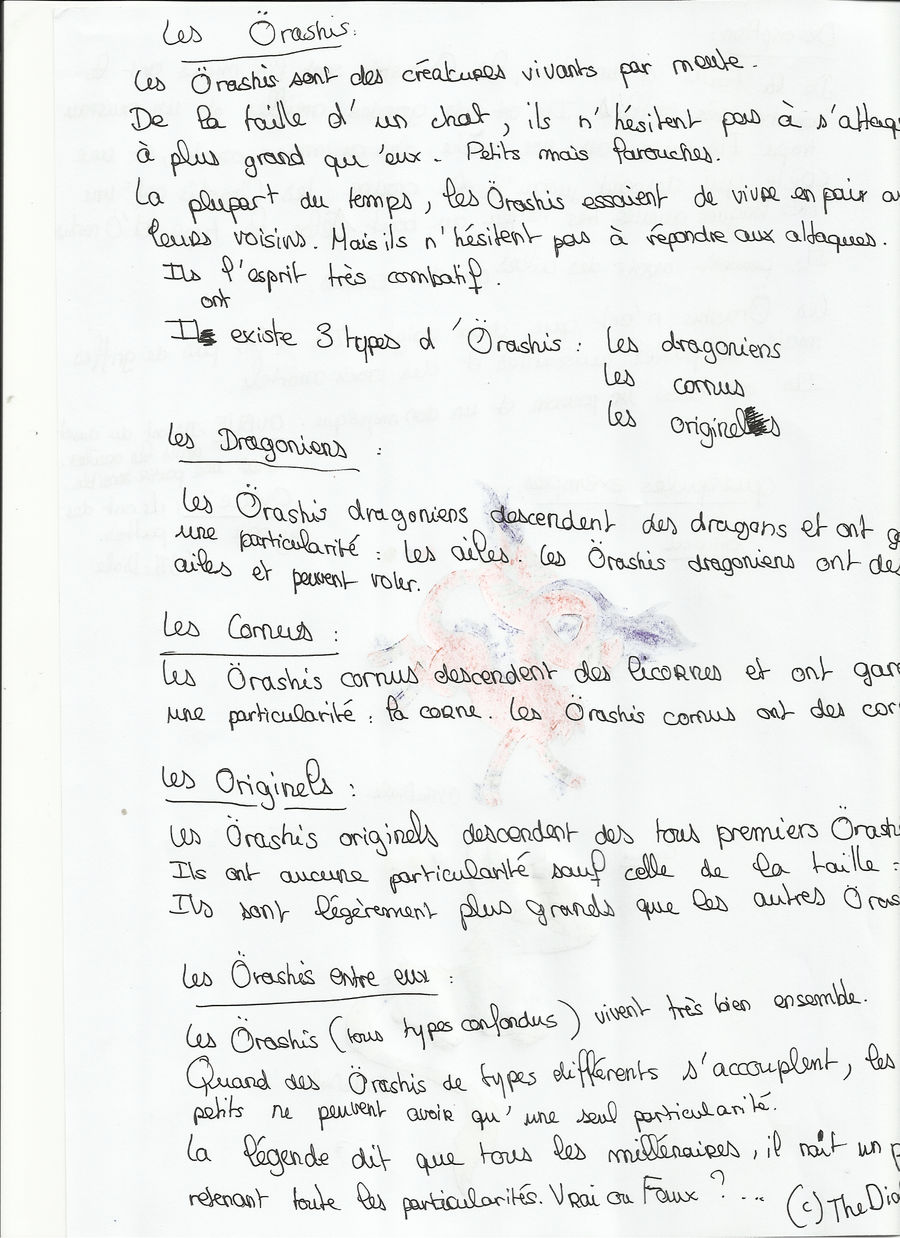 Les Örashis:
Les Örashis sont des créatures vivants par meute.
De la taille d'un chat, ils n'hésitent pas à s'attaq
à plus grand qu'eux. Petits mais farouches.
La plupart du temps, les Örashis essaient de vivre en paix av
leurs voisins. Mais ils n'hésitent pas à répondre aux attaques.
Ils l'esprit très combatif.
ont
Il existe 3 types d'Örashis : Les dragoniens
Les cornus
Les originels
Les Dragoniens :
Les Örashis dragoniens descendent des dragons et ont g
une particularité : Les ailes. Les Örashis dragoniens ont des
ailes et peuvent voler.
Les Cornus :
Les Örashis cornus descendent des licornes et ont gar
une particularité : la corne. Les Örashis cornus ont des cor
Les Originels :
Les Örashis originels descendent des tous premiers Örash
Ils ont aucune particularité sauf celle de la taille :
Ils sont légèrement plus grands que les autres Öras
Les Örashis entre eux :
Les Örashis (tous types confondus) vivent très bien ensemble.
Quand des Örashis de types différents s'accouplent, les
petits ne peuvent avoir qu'une seul particularité.
La légende dit que tous les millénaires, il naît un p
retenant toute les particularités. Vrai ou Faux ?...
(c) TheDia